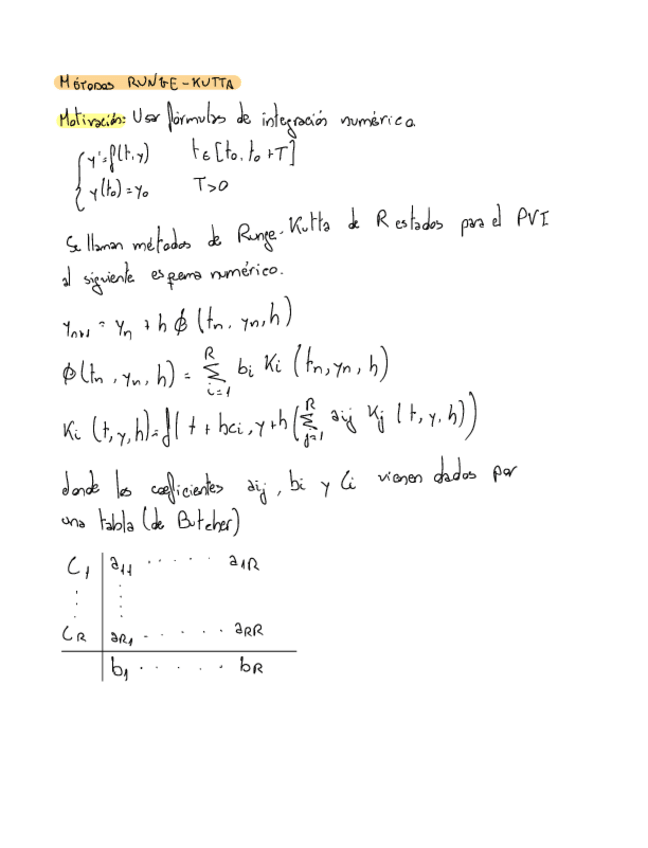 MÉTODOS RUNGE-KUTTA
Motivación: Usar fórmulas de integración numérica.
{ y'=f(t,y)   t∈[t₀, t₀+T]
{ y(t₀)=y₀   T>0
Se llaman métodos de Runge-Kutta de R estados para el PVI
al siguiente esquema numérico.
yₙ₊₁ = yₙ + h ϕ (tₙ, yₙ, h)
ϕ(tₙ, yₙ, h) = ∑_{i=1}^{R} bi Ki (tₙ, yₙ, h)
Ki (t,y,h)=f(t + hci, y+h(∑_{j=1}^{R} aij Kj (t,y,h))
donde los coeficientes aij, bi y Ci vienen dados por
una tabla (de Butcher)
C₁ | a₁₁ · · · · · a₁R
⋮ | ⋮
CR | aR₁ · · · · · aRR
| b₁ · · · · · bR